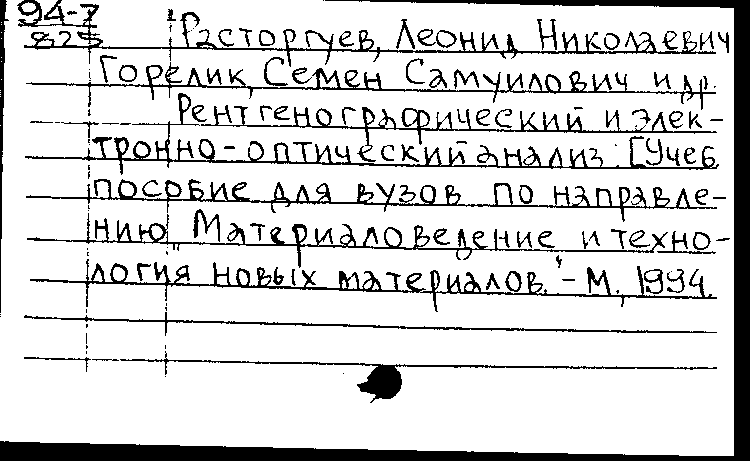 94-7
825
Расторгуев, Леонид Николаевич
Горелик, Семен Самуилович и др.
Рентгенографический и элек-
тронно-оптический анализ: [Учеб.
пособие для вузов по направле-
нию „Материаловедение и техно-
логия новых материалов." - М., 1994.